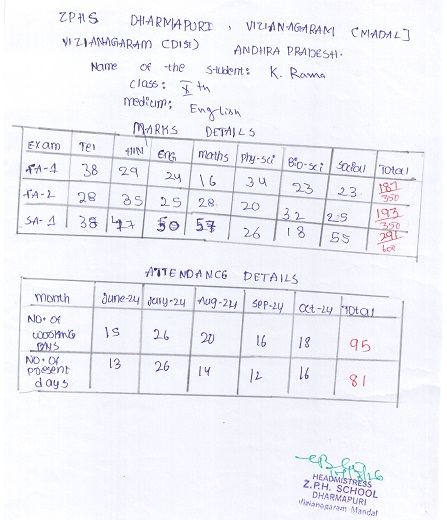 ZPHS DHARMAPURI, VIZIANAGARAM (MADAL]
VIZIANAGARAM (DIST) ANDHRA PRADESH.
Name of the student: K. Rama
class: X th
medium: English
MARKS DETAILS
Exam Tel HIN Eng maths Phy-sci Bio-sci Social Total
FA-1 38 29 24 16 34 23 23 187/350
FA-2 28 35 25 28 20 32 25 193/350
SA-1 38 47 50 57 26 18 55 291/600
ATTENDANCE DETAILS
month June-24 July-24 Aug-24 Sep-24 Oct-24 Total
NO. OF WOORKING DAYS 15 26 20 16 18 95
NO. OF present days 13 26 14 12 16 81
HEADMISTRESS
Z.P.H. SCHOOL
DHARMAPURI
Vizianagaram Mandal